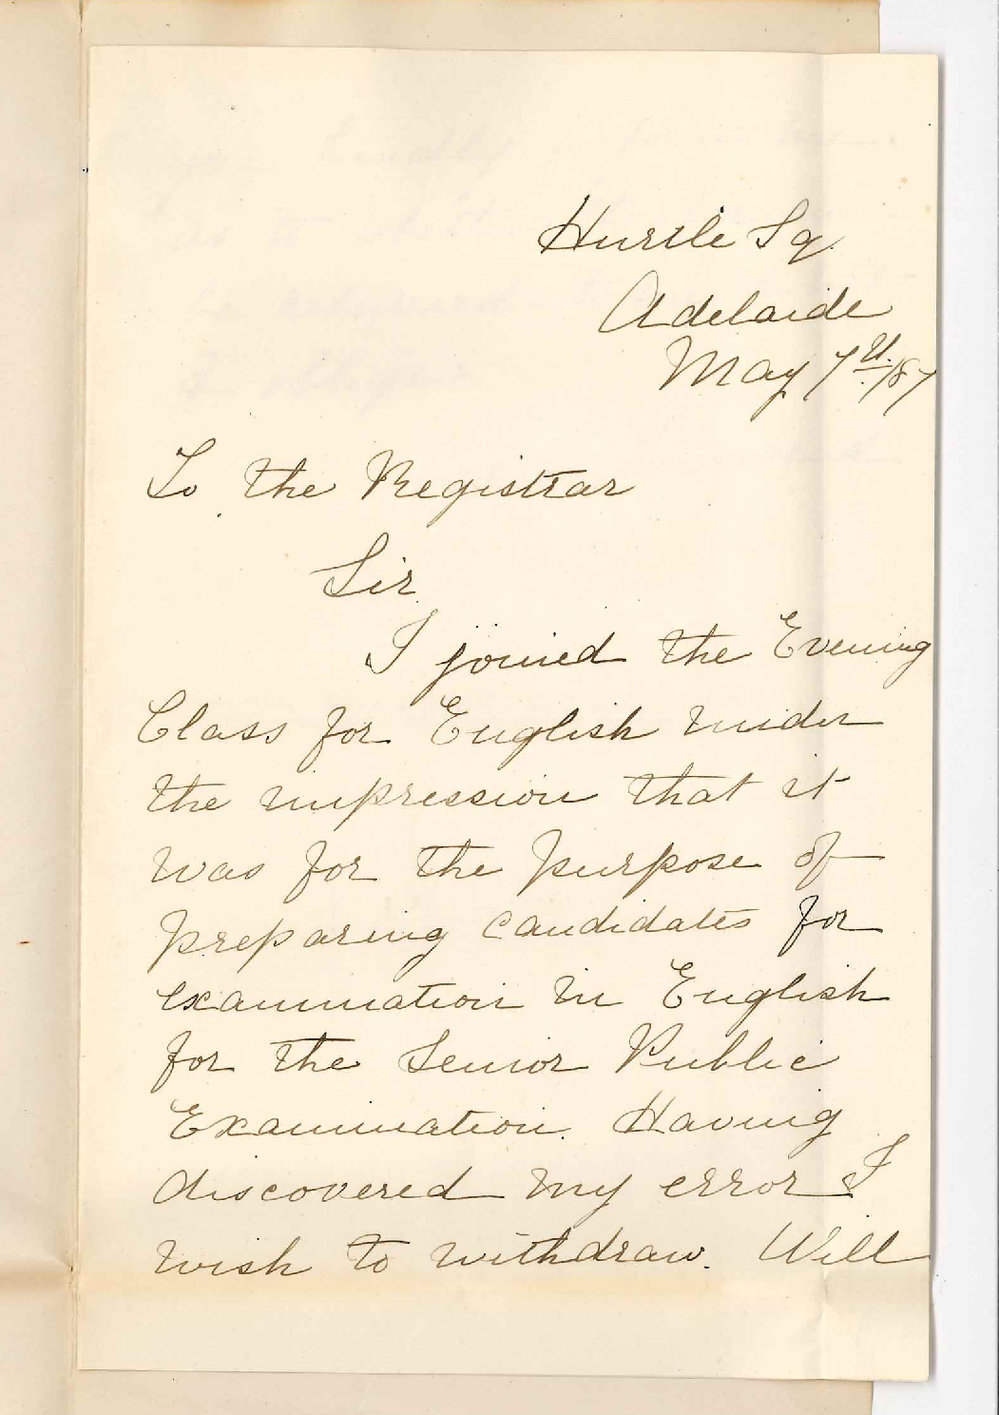 Hurtle Sq.
Adelaide
May 7th /87
To the Registrar
Sir
I joined the Evening
Class for English under
the impression that it
was for the purpose of
preparing candidates for
examination in English
for the Senior Public
Examination. Having
discovered my error I
wish to withdraw. Will